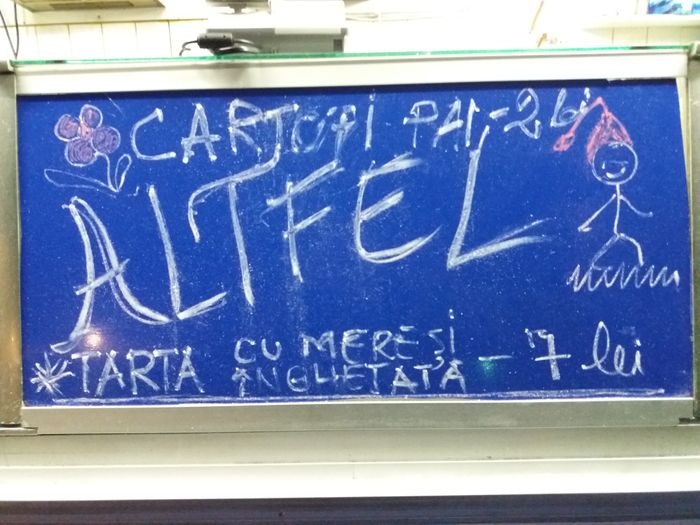 CARTOFI PAI - 2 lei
ALTFEL
*TARTA CU MERE ȘI
ÎNGHEȚATĂ - 7 lei